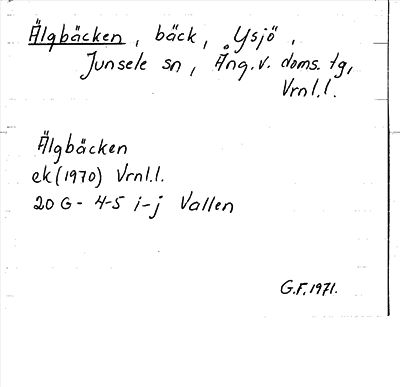 Älgbäcken, bäck, Ysjö,
Junsele sn, Ång. v. doms. tg,
Vrnl.l.
Älgbäcken
ek (1970) Vrnl.l.
20 G - 4-5 i-j Vallen
G.F. 1971.